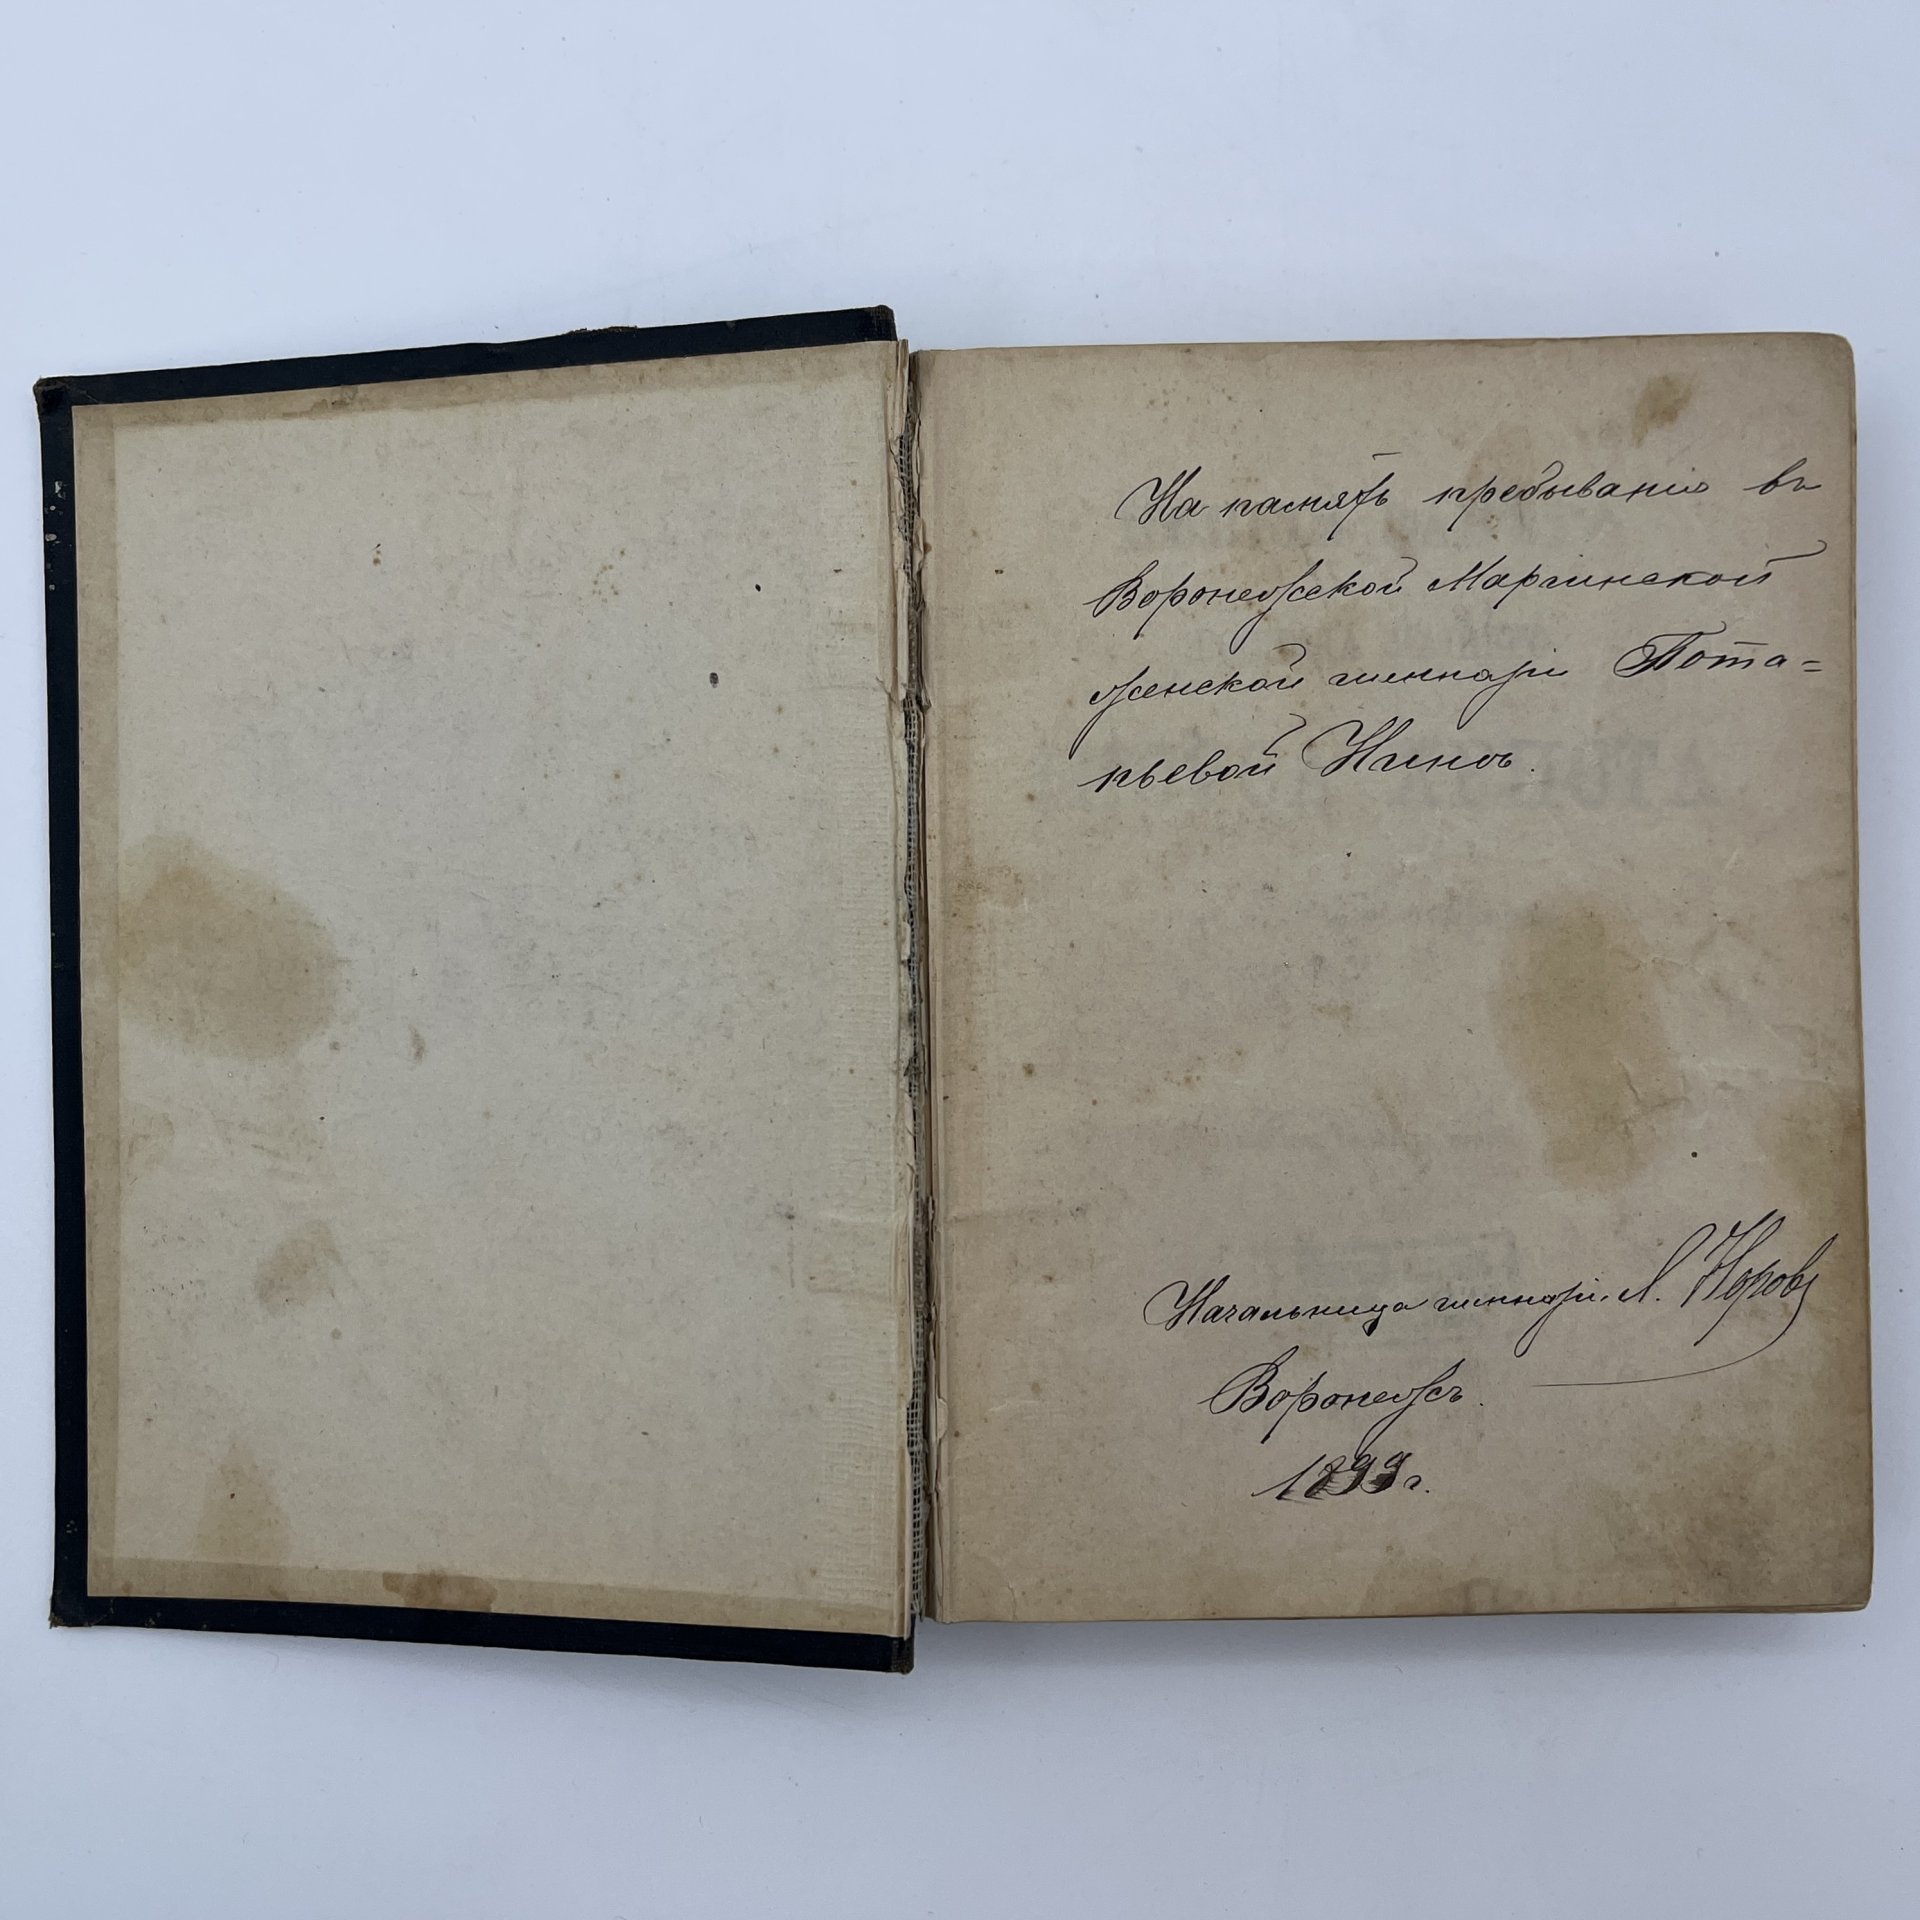 На память пребыванія въ
Воронежской Маріинской
женской гимназіи Пота=
пьевой Нинѣ.
Начальница гимназіи. Л. Норова
Воронежъ.
1899 г.